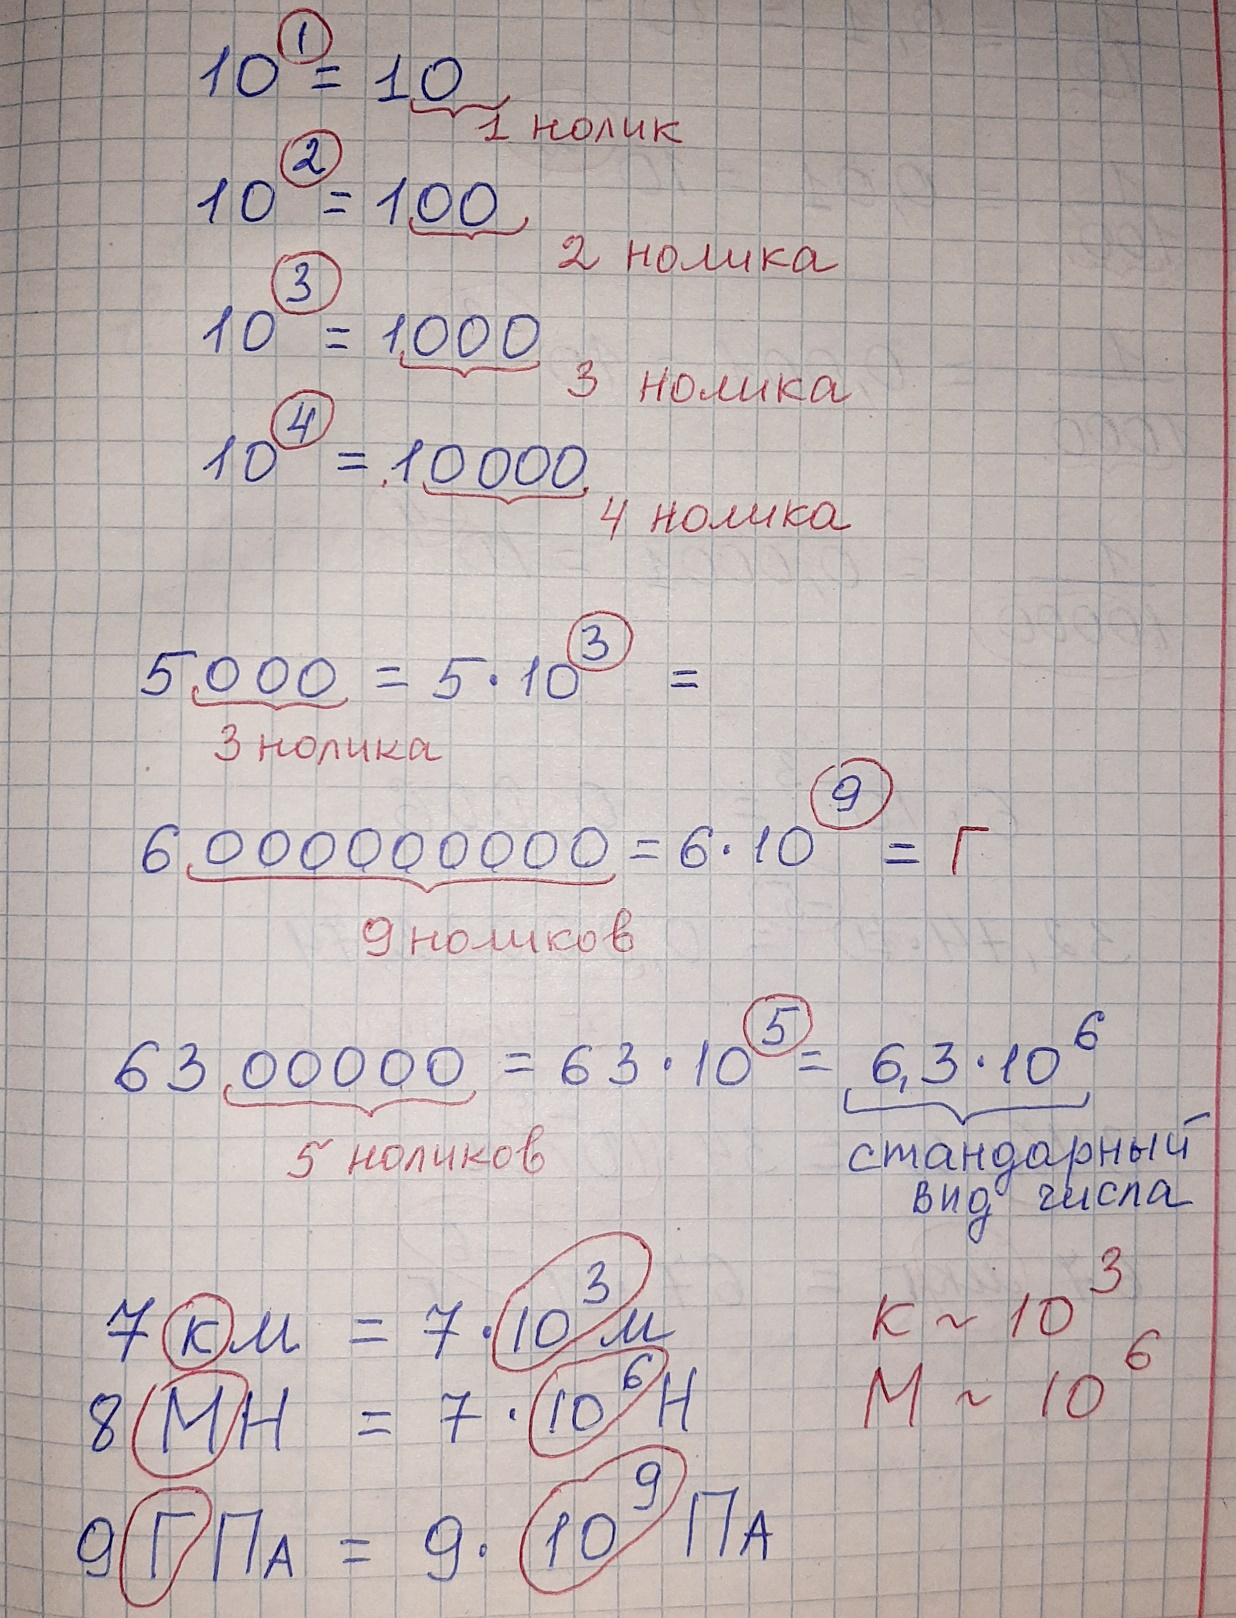 10¹ = 10
1 нолик
10² = 100
2 нолика
10³ = 1000
3 нолика
10⁴ = 10000
4 нолика
5000 = 5·10³ =
3 нолика
6000000000 = 6·10⁹ = Г
9 ноликов
6300000 = 63·10⁵ = 6,3·10⁶
5 ноликов
стандарный
вид числа
7 км = 7·10³ м
к ~ 10³
8 МН = 7·10⁶ Н
М ~ 10⁶
9 ГПа = 9·10⁹ Па